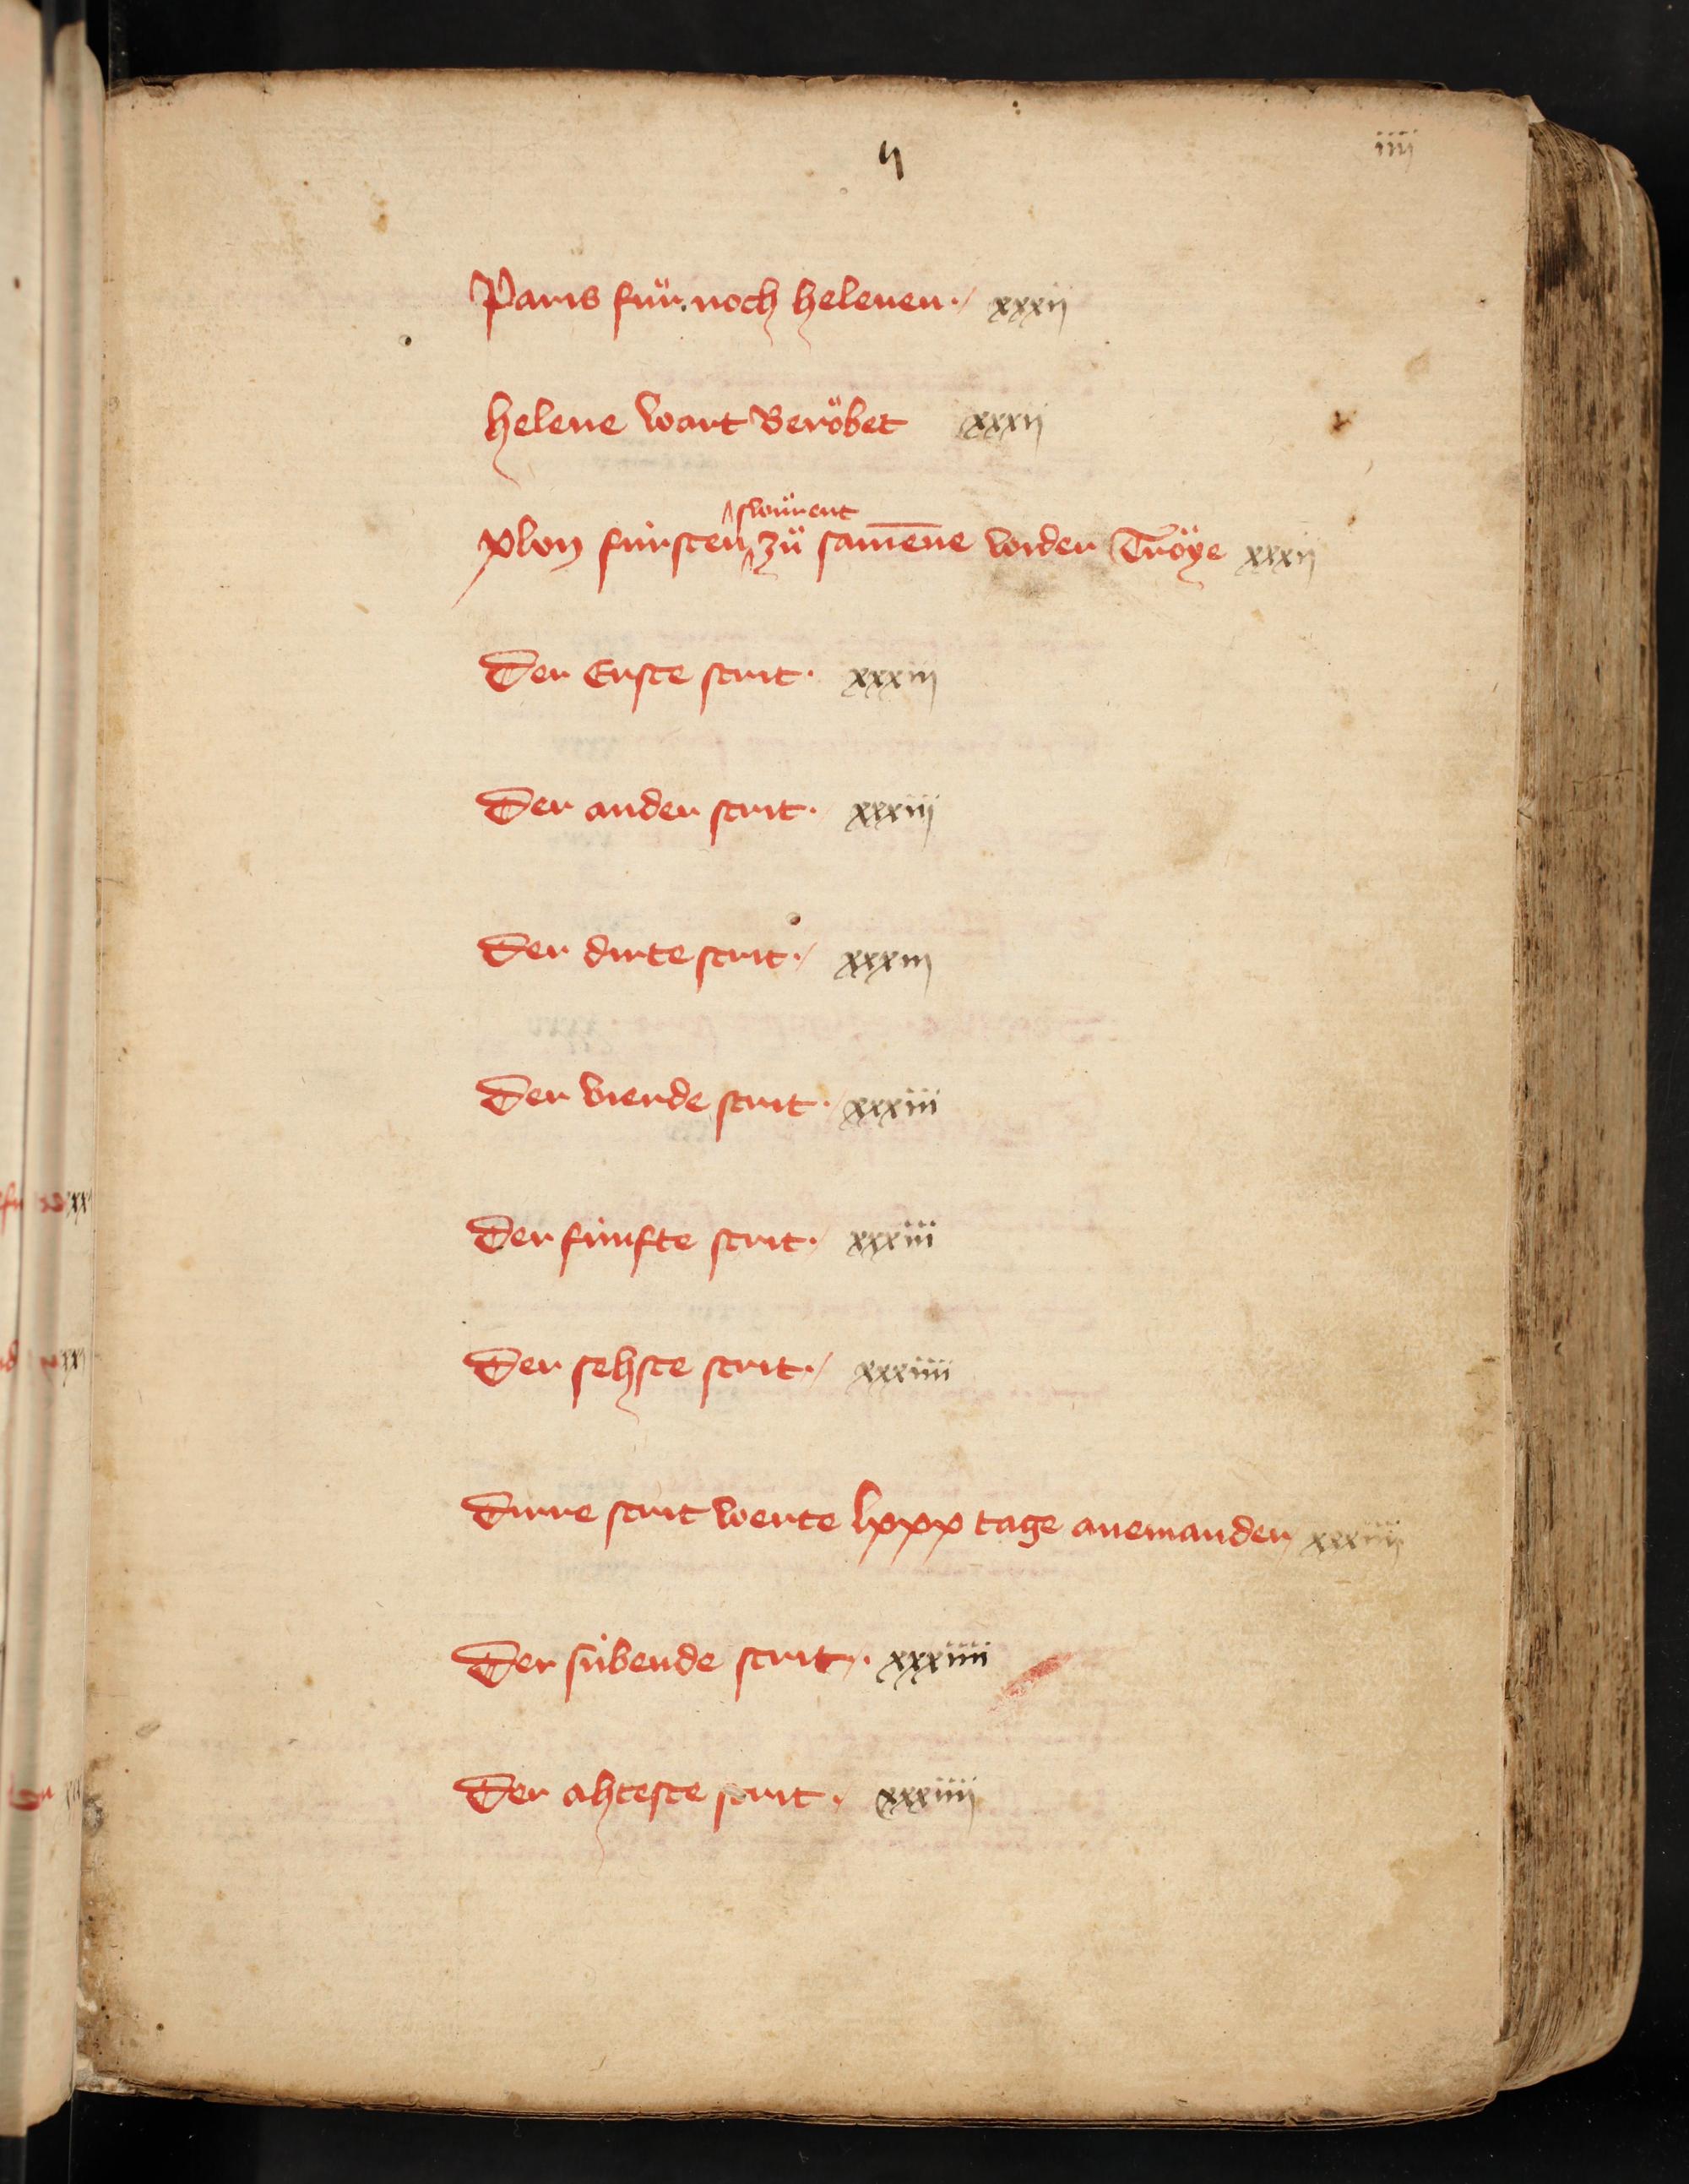 ij iiij
Paris fuͤr noch helenen · xxxij
helene wart Beroͤbet xxxij
swuͤrent
xlvij fürsten zuͦ samēne vorder Troͤye xxxij
Der Erste strit · xxxiij
Der ander strit · xxxiij
Der dirte strit · xxxiij
Der vierde strit · xxxiii
Der fúnfte strit · xxxiii
Der sehste strit · xxxiiii
Dirre strit werte lxxx tage anemander xxxiiij
Der súbende strit · xxxiiii
Der ahteste strit · xxxiiij